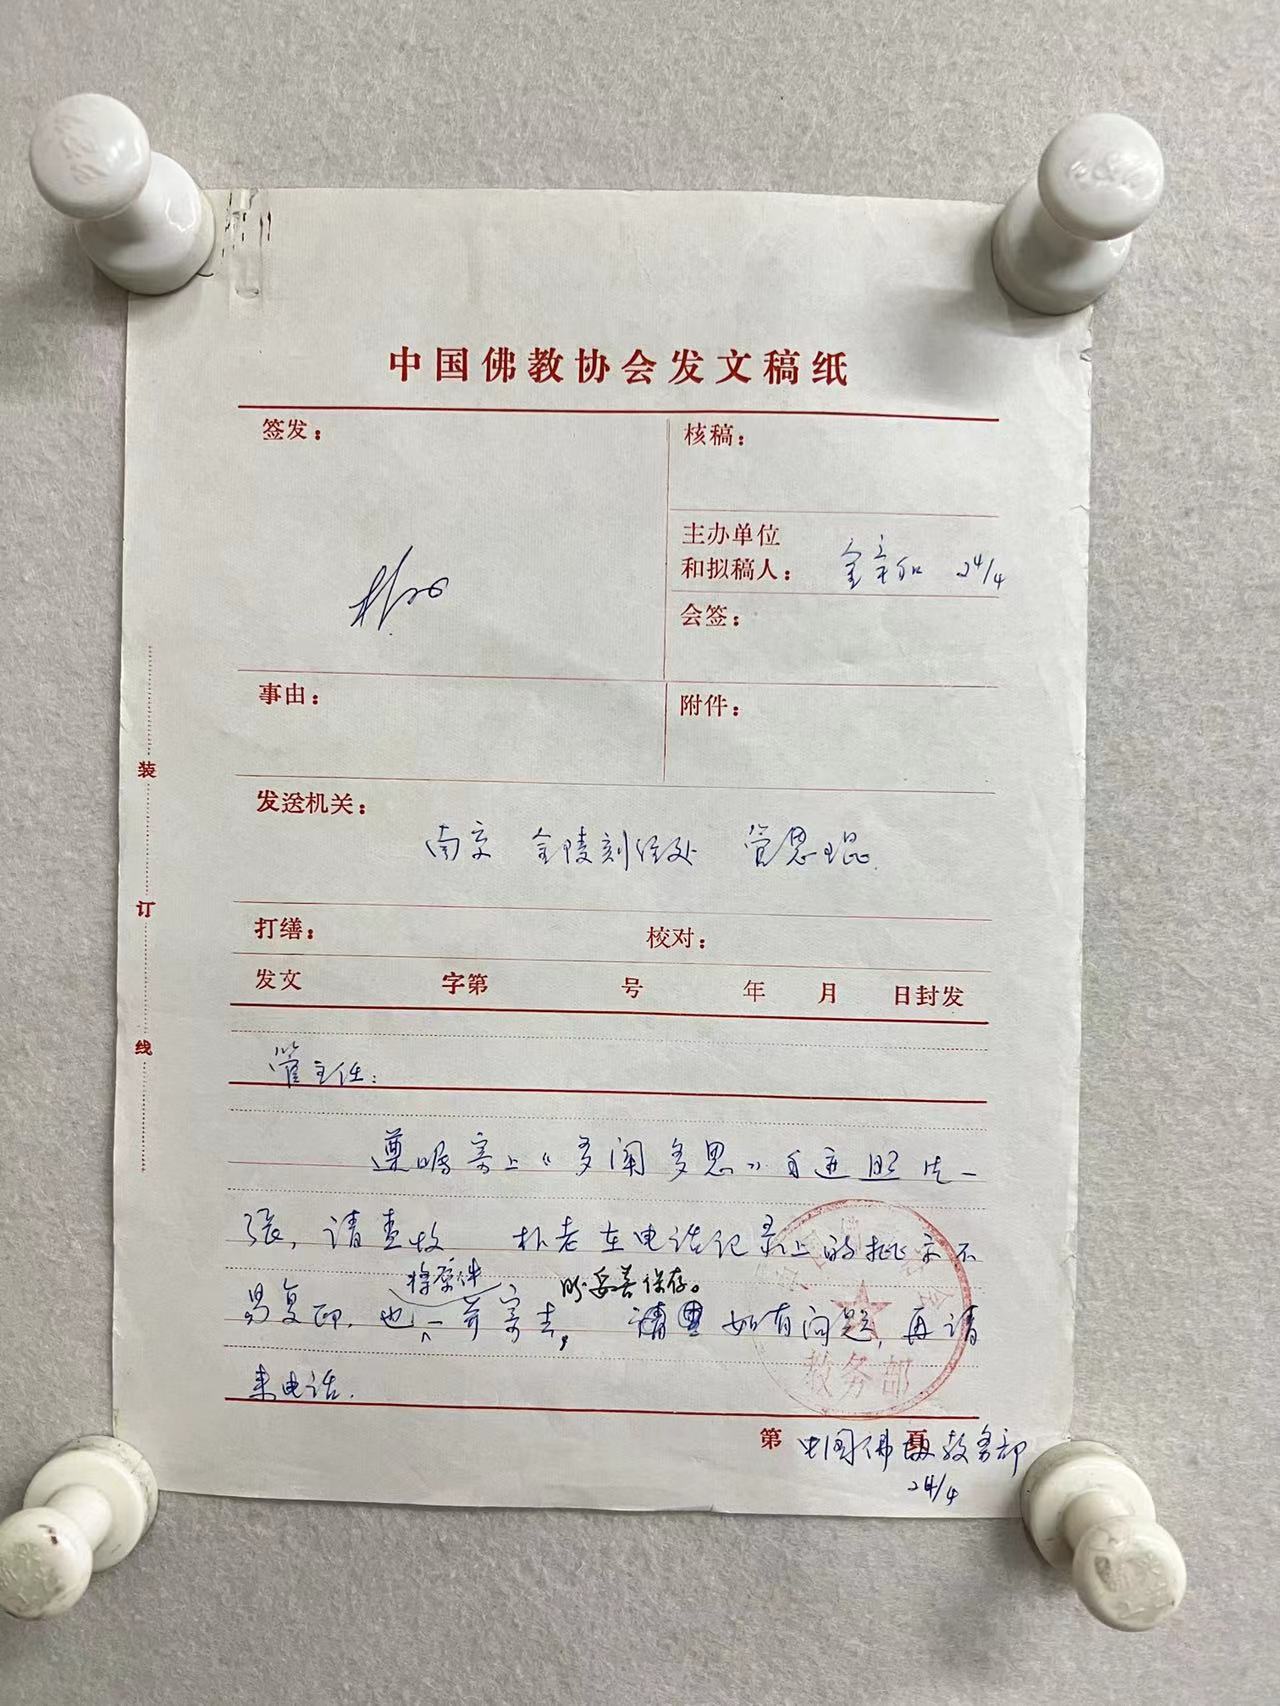 中国佛教协会发文稿纸
签发：
核稿：
主办单位
和拟稿人： 24/4
会签：
事由：
附件：
发送机关：
南京 金陵刻经处 管恩琨
打缮： 校对：
发文 字第 号 年 月 日封发
装
订
线
管主任：
遵嘱寄上《多闻多思》 照片一
张，请查收 朴老在电话记录上的批示不
易复印，也将原件一并寄去， 盼妥善保存。 请 如有问题，再请
来电话．
教务部
第 页
中国佛协教务部
24/4